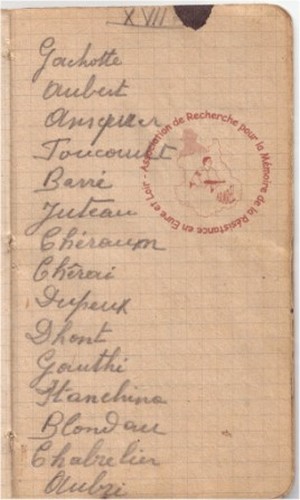 XVII
Gachotte
Aubert
Anquer
Toucourt
Barré
Juteau
Chéraum
Chérai
Dupeux
Dhont
Gauthi
Stanchina
Blondau
Chabrelier
Aubri
Association de Recherche pour la Mémoire de la Résistance en Eure et Loir -